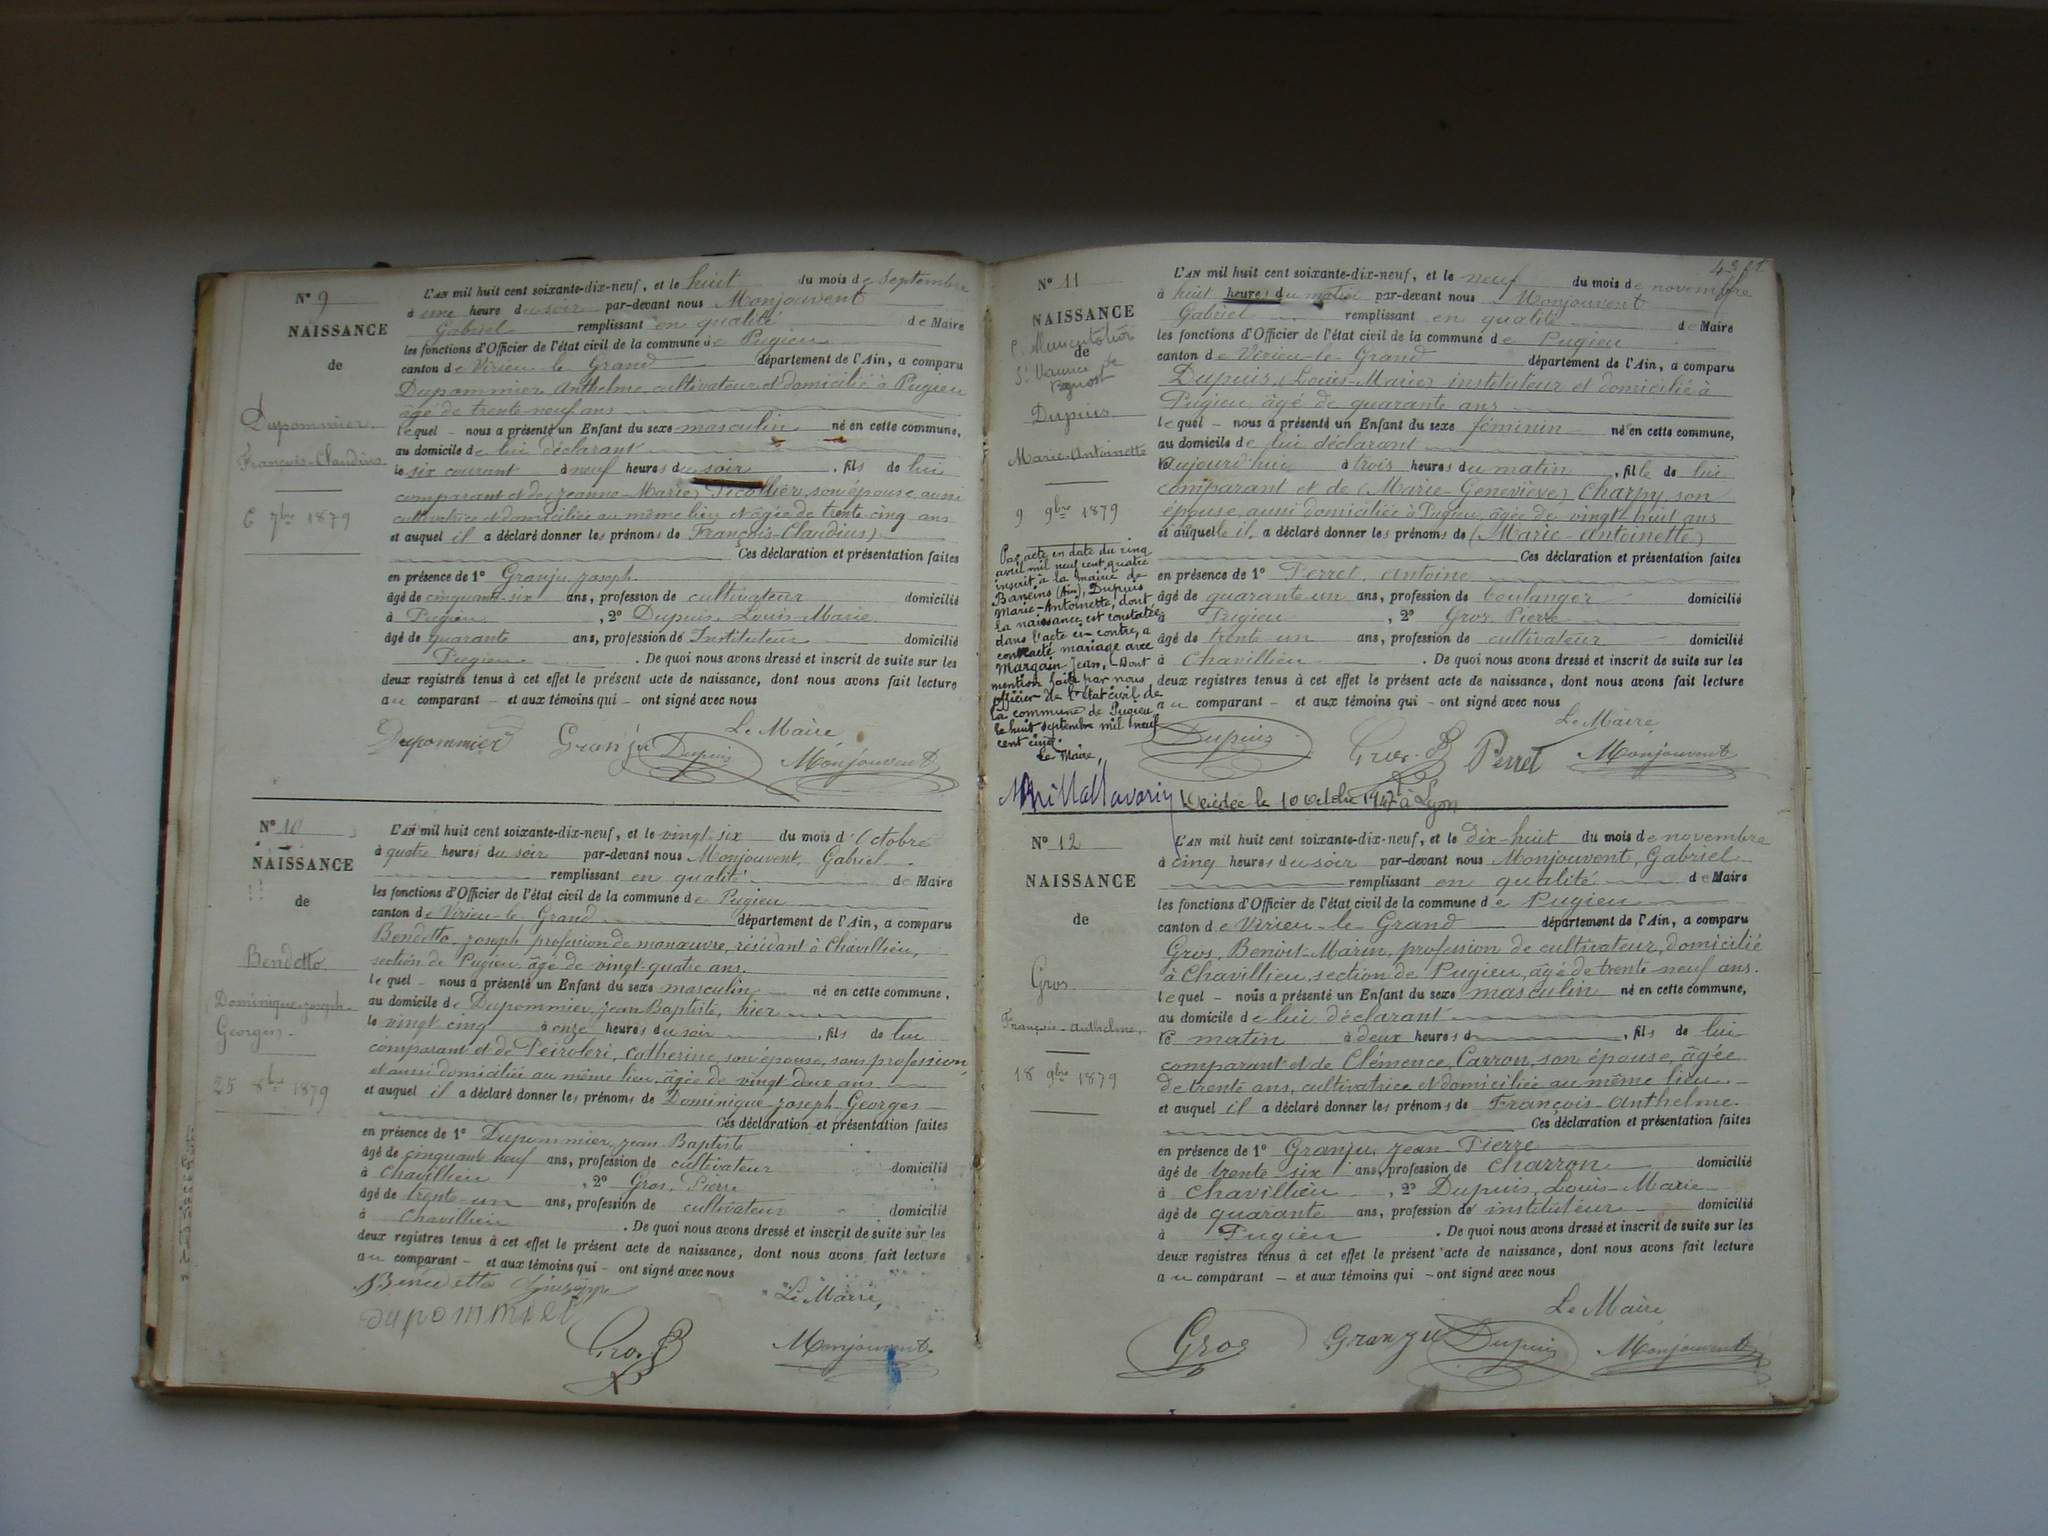 N° 9
NAISSANCE
de
Dupommier
François-Claudius
6 7bre 1879
L'AN mil huit cent soixante-dix-neuf, et le huit du mois de Septembre
à une heure du soir par-devant nous Monjouvent
Gabriel remplissant en qualité de Maire
les fonctions d'Officier de l'état civil de la commune de Pugieu
canton de Virieu le Grand département de l'Ain, a comparu
Dupommier Anthelme, cultivateur et domicilié à Pugieu
âgé de trente-neuf ans
lequel nous a présenté un Enfant du sexe masculin né en cette commune,
au domicile de lui déclarant
le six courant à neuf heures du soir, fils de lui
comparant et de (Jeanne-Marie) Picollier, son épouse, aussi
cultivatrice et domiciliée au même lieu et âgée de trente-cinq ans
et auquel il a déclaré donner les prénoms de François-Claudius)
Ces déclaration et présentation faites
en présence de 1° Granju Joseph
âgé de cinquante-six ans, profession de cultivateur domicilié
à Pugieu, 2° Dupuis, Louis-Marie
âgé de quarante ans, profession de Instituteur domicilié
Pugieu. De quoi nous avons dressé et inscrit de suite sur les
deux registres tenus à cet effet le présent acte de naissance, dont nous avons fait lecture
au comparant et aux témoins qui ont signé avec nous
Le Maire,
Dupommier Granju Dupuis Monjouvent
N° 10
NAISSANCE
de
Bendetto
Dominique-Joseph-
Georges
25 8bre 1879
L'AN mil huit cent soixante-dix-neuf, et le vingt-six du mois d'Octobre
à quatre heures du soir par-devant nous Monjouvent, Gabriel
remplissant en qualité de Maire
les fonctions d'Officier de l'état civil de la commune de Pugieu
canton de Virieu-le-Grand département de l'Ain, a comparu
Bendetto, Joseph profession de manœuvre, résidant à Chavillieu,
section de Pugieu, âgé de vingt-quatre ans.
lequel nous a présenté un Enfant du sexe masculin né en cette commune,
au domicile de Dupommier, Jean Baptiste, hier
le vingt cinq à onze heures du soir, fils de lui
comparant et de Peiroleri, Catherine, son épouse, sans profession,
et aussi domiciliée au même lieu, âgée de vingt-deux ans
et auquel il a déclaré donner les prénoms de Dominique-Joseph-Georges
Ces déclaration et présentation faites
en présence de 1° Dupommier, Jean Baptiste
âgé de cinquante neuf ans, profession de cultivateur domicilié
à Chavillieu, 2° Gros, Pierre
âgé de trente-un ans, profession de cultivateur domicilié
à Chavillieu. De quoi nous avons dressé et inscrit de suite sur les
deux registres tenus à cet effet le présent acte de naissance, dont nous avons fait lecture
au comparant et aux témoins qui ont signé avec nous
Benedetto Giuseppe Le Maire,
Dupommier
Gros P Monjouvent
N° 11
NAISSANCE
de
St Maurice de
Dupuis
Marie-Antoinette
9 9bre 1879
Par acte en date du cinq
avril mil neuf cent quatre
inscrit à la mairie de
Baneins (Ain), Dupuis
Marie-Antoinette, dont
la naissance est constatée
dans l'acte ci-contre, a
contracté mariage avec
Margain Jean, Dont
mention faite par nous
officier de l'état civil de
la commune de Pugieu
le huit septembre mil neuf
cent cinq.
Le Maire,
Décédée le 10 octobre 1947 à Lyon
43
L'AN mil huit cent soixante-dix-neuf, et le neuf du mois de novembre
à huit heures du matin par-devant nous Monjouvent
Gabriel remplissant en qualité de Maire
les fonctions d'Officier de l'état civil de la commune de Pugieu
canton de Virieu-le-Grand département de l'Ain, a comparu
Dupuis, (Louis-Marie) instituteur et domicilié à
Pugieu âgé de quarante ans
lequel nous a présenté un Enfant du sexe féminin né en cette commune,
au domicile de lui déclarant
aujourd'hui à trois heures du matin, fille de lui
comparant et de (Marie-Geneviève) Charpy, son
épouse, aussi domiciliée à Pugieu, âgée de vingt-huit ans
et auquelle il a déclaré donner les prénoms de (Marie-Antoinette)
Ces déclaration et présentation faites
en présence de 1° Perret, Antoine
âgé de quarante-un ans, profession de boulanger domicilié
à Pugieu, 2° Gros, Pierre
âgé de trente un ans, profession de cultivateur domicilié
à Chavillieu. De quoi nous avons dressé et inscrit de suite sur les
deux registres tenus à cet effet le présent acte de naissance, dont nous avons fait lecture
au comparant et aux témoins qui ont signé avec nous
Le Maire,
Dupuis Gros P Perret Monjouvent
N° 12
NAISSANCE
de
Gros
François-Anthelme,
18 9bre 1879
L'AN mil huit cent soixante-dix-neuf, et le dix-huit du mois de novembre
à cinq heures du soir par-devant nous Monjouvent, Gabriel
remplissant en qualité de Maire
les fonctions d'Officier de l'état civil de la commune de Pugieu
canton de Virieu-le-Grand département de l'Ain, a comparu
Gros, Benoit-Marin, profession de cultivateur, domicilié
à Chavillieu, section de Pugieu, âgé de trente-neuf ans.
lequel nous a présenté un Enfant du sexe masculin né en cette commune,
au domicile de lui déclarant
ce matin à deux heures d, fils de lui
comparant et de Clémence, Carron, son épouse, âgée
de trente ans, cultivatrice et domiciliée au même lieu
et auquel il a déclaré donner les prénoms de François-Anthelme.
Ces déclaration et présentation faites
en présence de 1° Granju, Jean-Pierre
âgé de trente six ans, profession de charron domicilié
à Chavillieu, 2° Dupuis, Louis-Marie
âgé de quarante ans, profession de instituteur domicilié
à Pugieu. De quoi nous avons dressé et inscrit de suite sur les
deux registres tenus à cet effet le présent acte de naissance, dont nous avons fait lecture
au comparant et aux témoins qui ont signé avec nous
Le Maire,
Gros Granju Dupuis Monjouvent